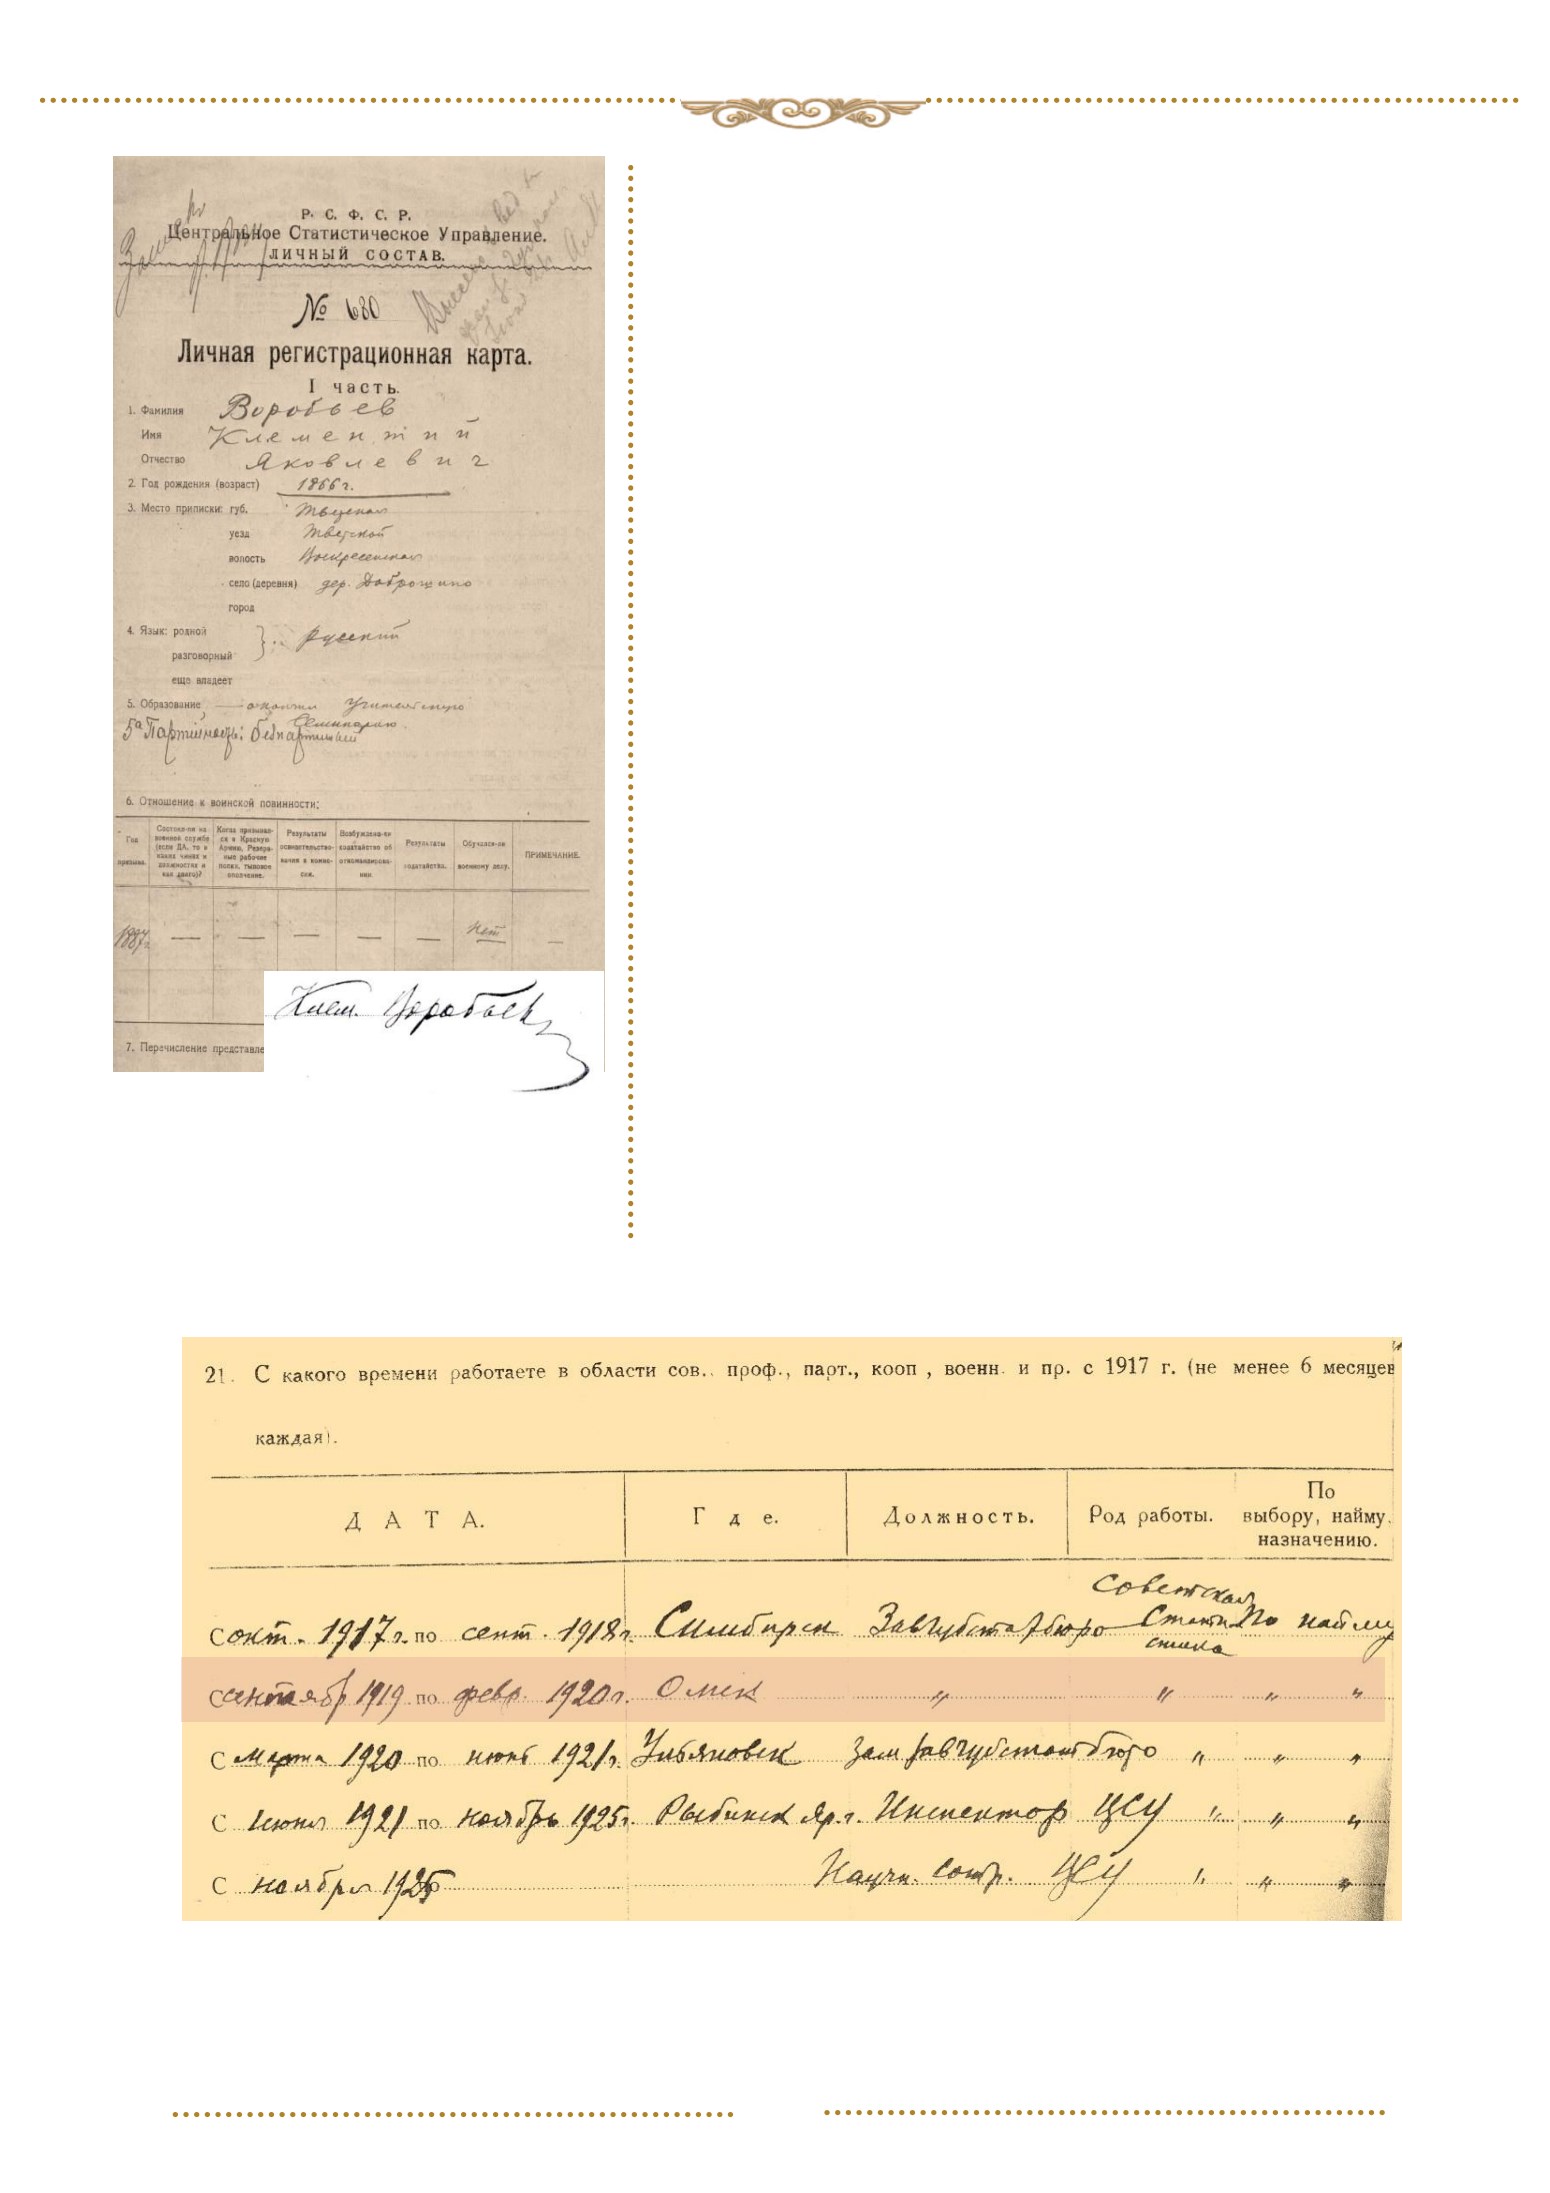 Р. С. Ф. С. Р.
Центральное Статистическое Управление.
ЛИЧНЫЙ СОСТАВ.
№ 680
Личная регистрационная карта.
I часть.
1. Фамилия Воробьев
Имя Клементий
Отчество Яковлевич
2. Год рождения (возраст) 1866 г.
3. Место приписки: губ. Тверская
уезд Тверской
волость Воскресенская
село (деревня) дер.
город
4. Язык: родной
разговорный } русский
еще владеет
5. Образование окончил Учительскую
Семинарию.
5а Партийность: беспартийный
6. Отношение к воинской повинности:
Год призыва.
Состоял-ли на военной службе (если ДА, то в каких чинах и должностях и как долго)?
Когда призывался в Красную Армию, Резервные рабочие полки, тыловое ополчение.
Результаты освидетельствования в комиссии.
Возбуждено-ли ходатайство об откомандировании.
Результаты ходатайства.
Обучался-ли военному делу.
ПРИМЕЧАНИЕ.
1887 г. — — — — — Нет —
7. Перечисление представле
Клем. Воробьев
21. С какого времени работаете в области сов., проф., парт., кооп , военн. и пр. с 1917 г. (не менее 6 месяцев
каждая).
ДАТА. Где. Должность. Род работы. По выбору, найму, назначению.
С окт. 1917 г. по сент. 1918 г. Симбирск Завгубстатбюро Советская Статистика По найму
С сентябр 1919 по февр. 1920 г. Омск " " " "
С марта 1920 по июнь 1921 г. Ульяновск зам завгубстатбюро " " "
С июня 1921 по ноябрь 1925 г. Рыбинск Яр. г. Инспектор ЦСУ " " "
С ноября 1925 Научн. сотр. ЦСУ " " "